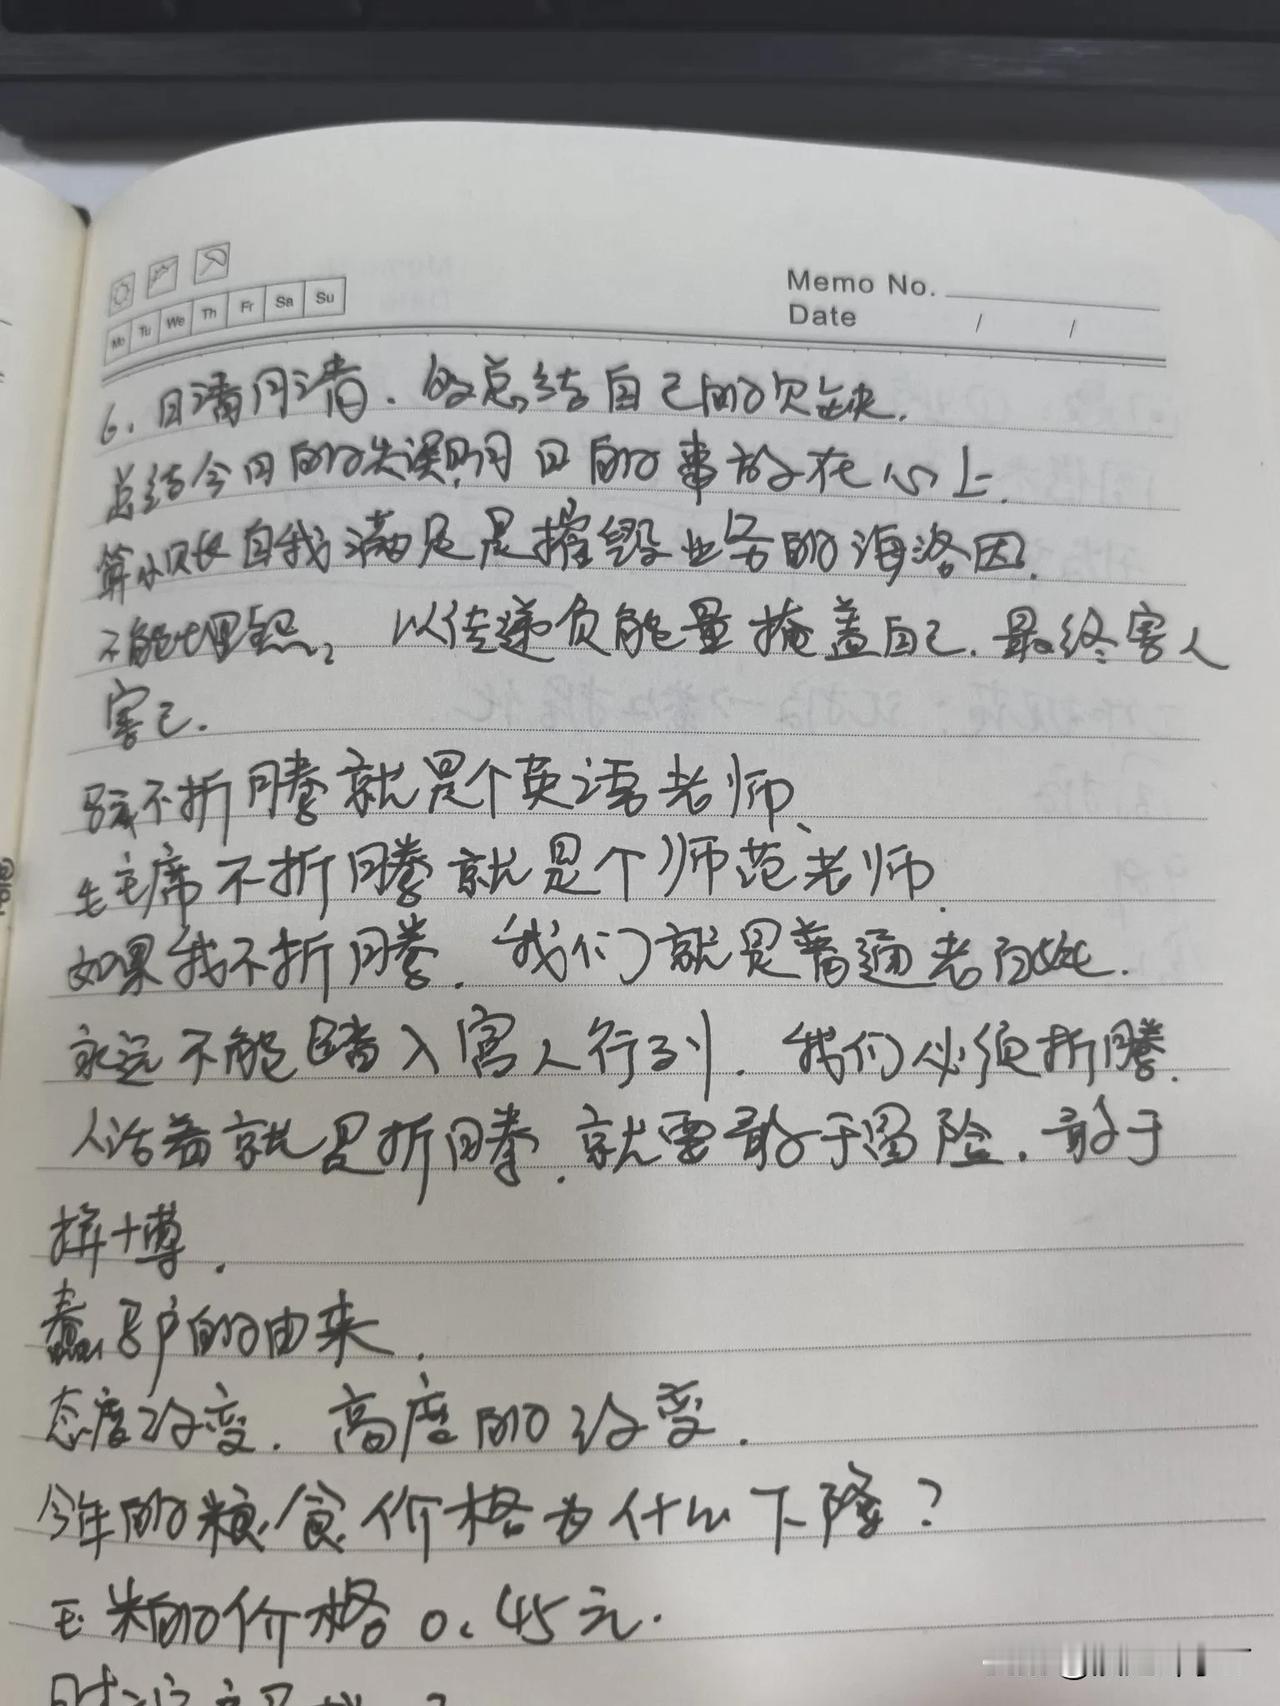 Mo Tu We Th Fr Sa Su
Memo No.
Date / /
6. 日清月清. 的总结自己的欠缺.
总结今日的失误,明日的事放在心上.
算小账自我满足是摧毁业务的海洛因.
不能埋怨, 以传递负能量掩盖自己. 最终害人
害己.
不折腾就是个英语老师、
毛主席不折腾就是个师范老师.
如果我不折腾. 我们就是普通老百姓.
永远不能踏入富人行列. 我们必须折腾.
人活着就是折腾. 就要敢于冒险. 敢于
拼博.
蠢 的由来.
态度改变. 高度的改变.
今年的粮食价格为什么下降?
玉米的价格0.45元.